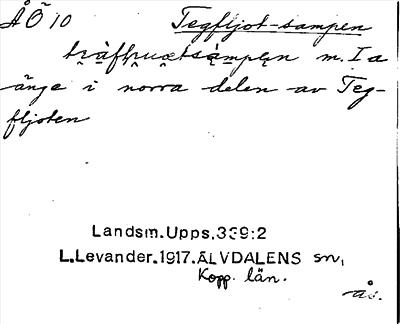 ÅÖ 10 Tegfljot-sampen
m. Ia
änge i norra delen av Teg-
fljoten
Landsm.Upps.339:2
L.Levander.1917.ÄLVDALENS sn,
Kopp. län.
Ås.